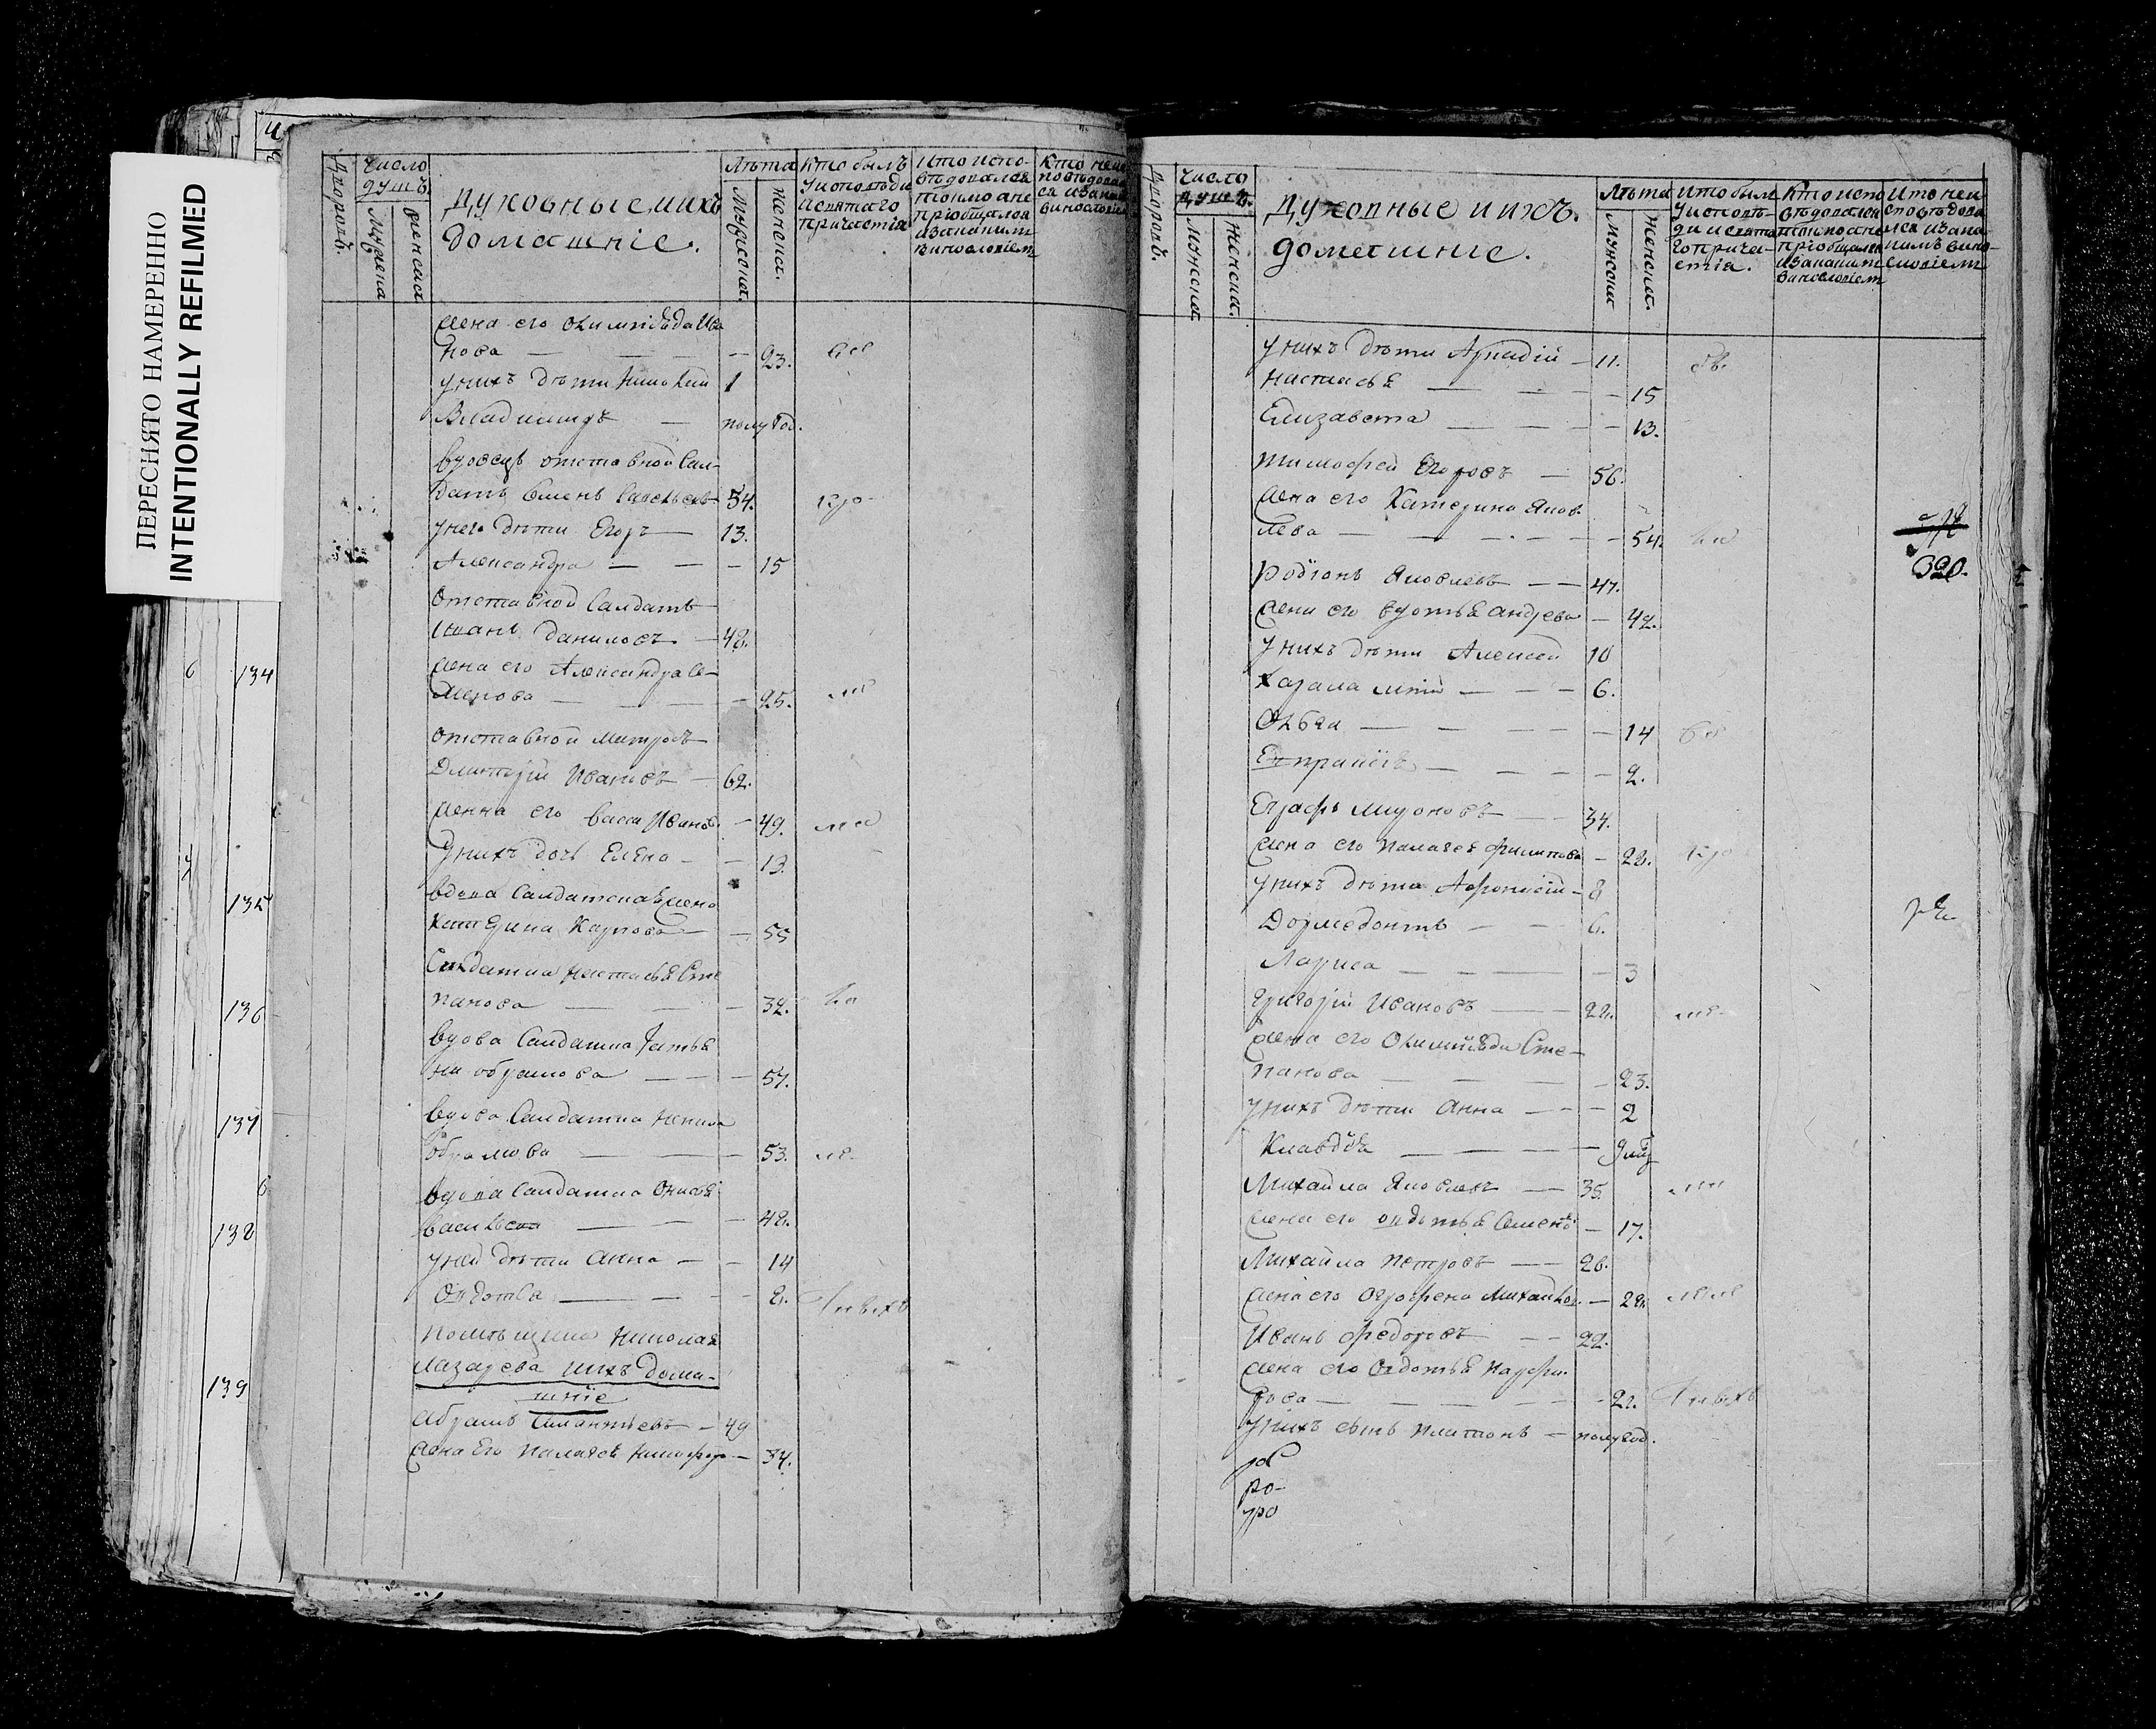 ПЕРЕСНЯТО НАМЕРЕННО
INTENTIONALLY REFILMED
6 134
7
135
136
137
6
138
139
Дворовъ.
Число
душъ.
Мужеска
Женска
Духовные ихъ
домашніе.
Лѣта
Мужеска.
Женска.
Кто былъ
у исповѣди
и святаго
причастія
Кто испо-
вѣдовался
токмо а не
пріобщался
и за какимъ
винословіем
жена его Олимпіада Ива
нова — — — — 23.
у нихъ дѣти Николай 1
Владимиръ — полугод.
вдовецъ отставной Сал-
датъ Семенъ Савельевъ 54.
у него дѣти Егоръ — 13.
Александра — — — 15
Отставной Салдатъ
Иванъ Даниловъ — 48.
жена его Александра Се-
менова — — — 25.
отставной Матросъ
Дмитрій Ивановъ — 62.
женна его Васса Иванов. — 49.
у нихъ дочь Елена — — 13.
вдова Салдатская жена
Катерина Карпова — — 55
Салдатка Настасья Сте
панова — — — 32.
вдова Салдатка Татья
на Абрамова — — — 57.
вдова Салдатка
Абрамова — — — 53.
вдова Салдатка Анисья
Васильева — — — 42.
у ней дѣти Анна — — 14
Авдотья — — — 8.
Помѣщика Николая
Лазарева и ихъ дома-
шніе
Абрамъ — 49
жена Его Палагея Никифоро — 34.
Дворовъ.
Число
душъ.
Мужеска
Женска.
Духовные и ихъ.
домашніе.
Лѣта
Мужска
Женска.
Кто был
у исповѣ-
ди и свята
го прича-
стія.
Кто испо
вѣдовался
токмо а не
пріобщался
и за какимъ
винословіем
Кто не и
сповѣдова
лся и за ка
кимъ вино-
словіемъ
у нихъ дѣти Аркадій — 11.
Настасья — — — 15
Елизавета — — — 13.
Тимофей Егоровъ — 56.
жена его Катерина Яков
лева — — — — — 54.
Родіонъ Яковлевъ — — 47.
жена его Авдотья Андреева — 42.
у нихъ дѣти Алексей 10
Харалампій — — — 6.
Ольга — — — — 14
Евпраксія — — — — 2.
Евграфъ Мироновъ — 34.
жена его Палагея Филипова — 28.
у нихъ дѣти Афонасій — 8
Дормедонтъ — — 6.
Лариса — — — — 3
Григорій Ивановъ — — 22.
жена его Олимпіада Сте-
панова — — — — 23.
у нихъ дѣти Анна — — — 2
Клавдія — — — —
Михайла Яковлевъ — 35.
жена его Авдотья Семено — 17.
Михайла Петровъ — — 26.
жена его Аграфена Михайло. — 28.
Иванъ Федоровъ — — 22.
жена его Авдотья
рова — — — — — 22.
у нихъ сынъ Платонъ — полугод.
320.